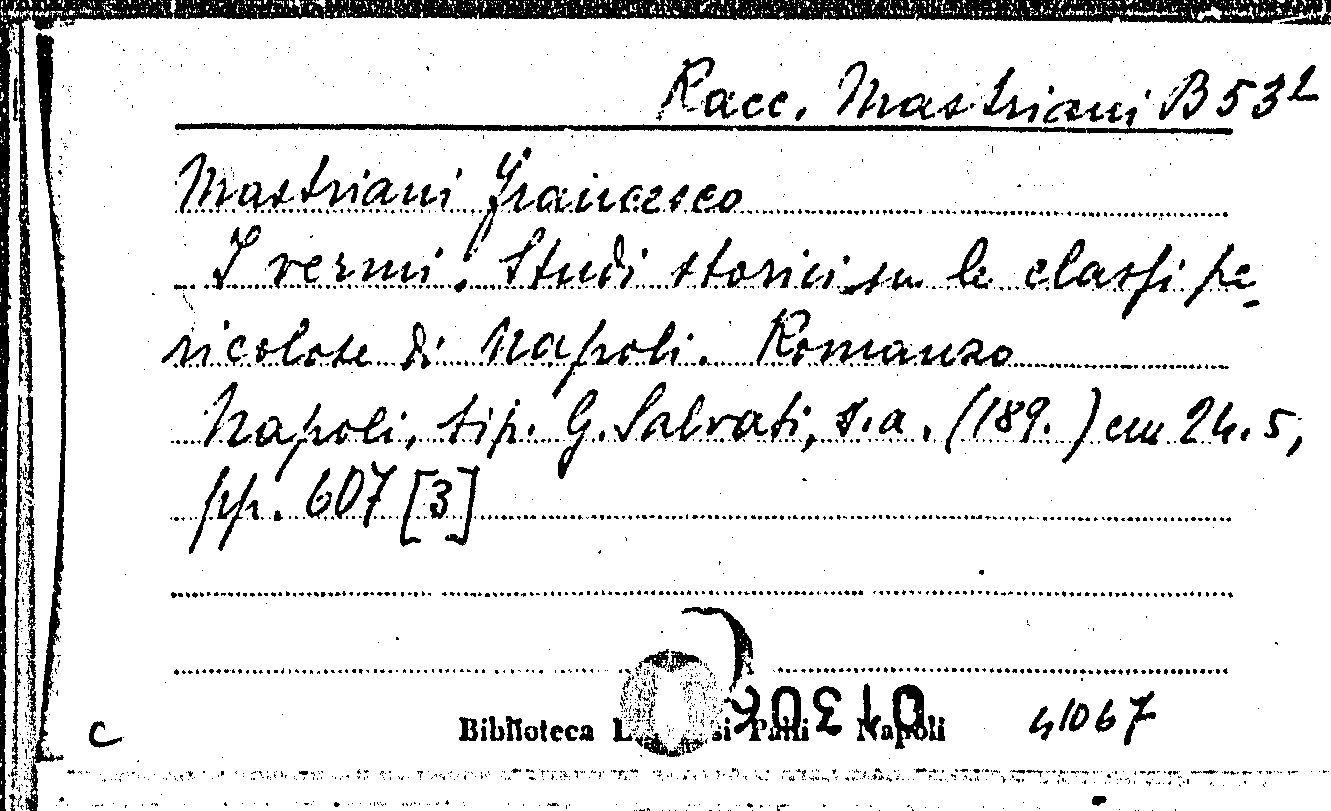 Racc. Mastriani B 53²
Mastriani Francesco
I vermi. Studi storici su le classi pe-
ricolose di Napoli. Romanzo
Napoli, tip. G. Salvati, s.a. (189. ) cm 24.5,
pp. 607 [3]
Biblioteca Napoli 41067
C